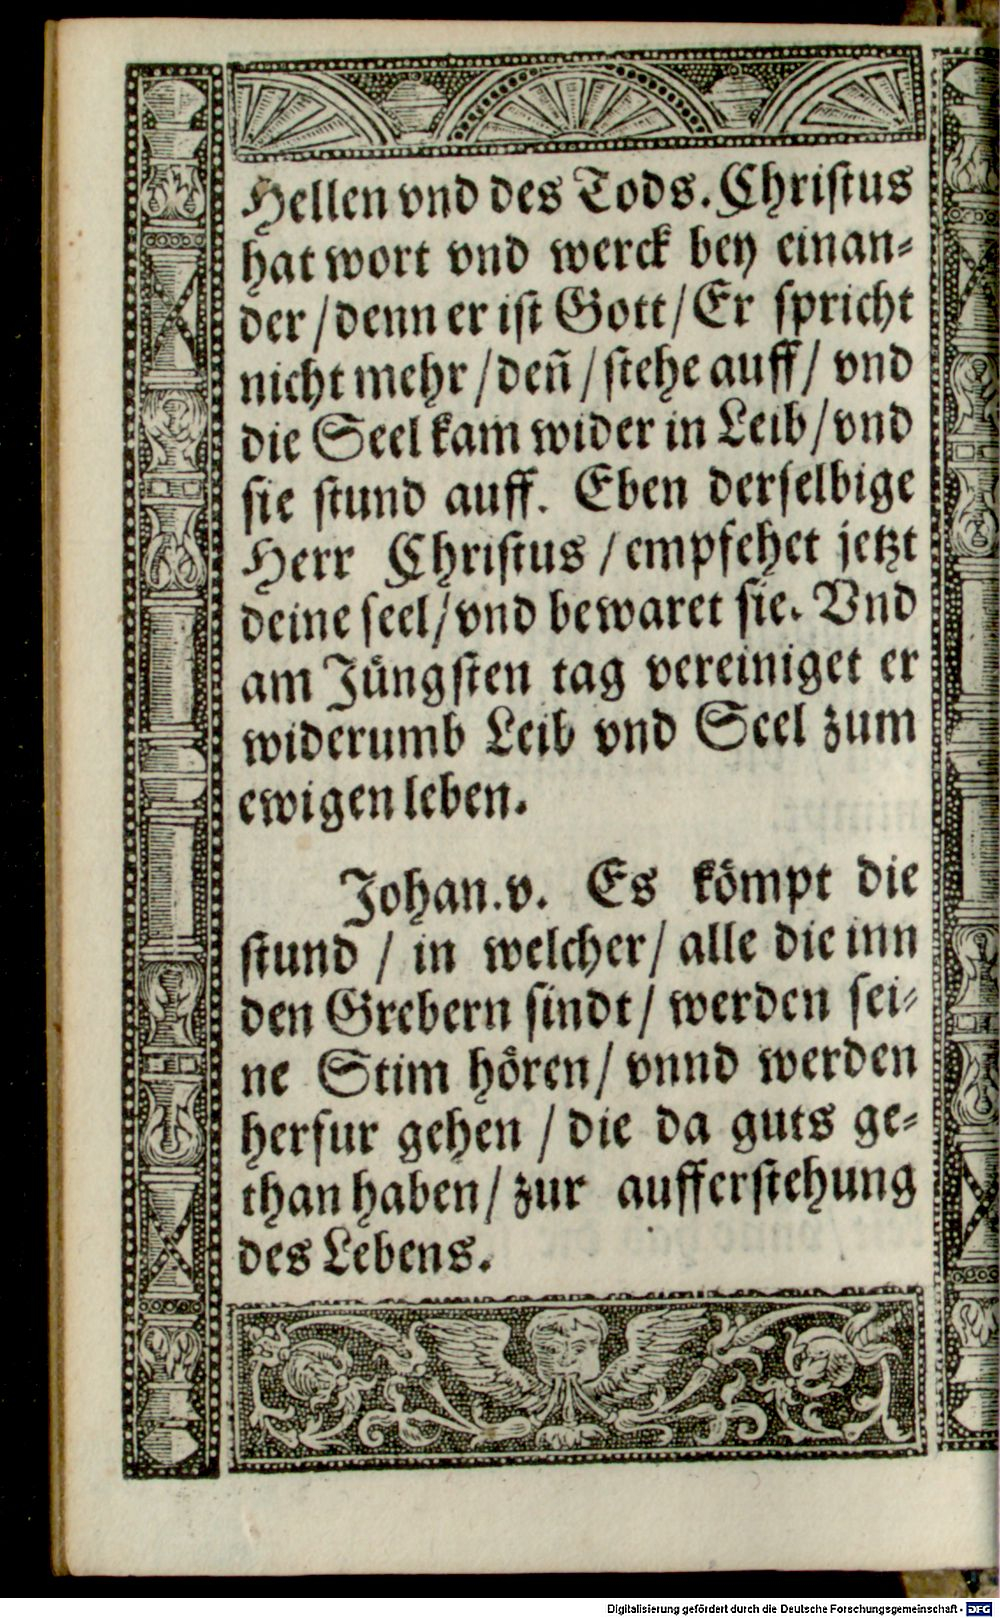 Hellen vnd des Tods. Christus
hat wort vnd werck bey einan⸗
der / denn er ist Gott / Er spricht
nicht mehr / deñ / stehe auff / vnd
die Seel kam wider in Leib / vnd
sie stund auff. Eben derselbige
Herr Christus / empfehet jetzt
deine seel / vnd bewaret sie. Vnd
am Jüngsten tag vereiniget er
widerumb Leib vnd Seel zum
ewigen leben.
Johan. v. Es kömpt die
stund / in welcher / alle die inn
den Grebern sindt / werden sei⸗
ne Stim hören / vnnd werden
herfur gehen / die da guts ge⸗
than haben / zur aufferstehung
des Lebens.
Digitalisierung gefördert durch die Deutsche Forschungsgemeinschaft - DFG